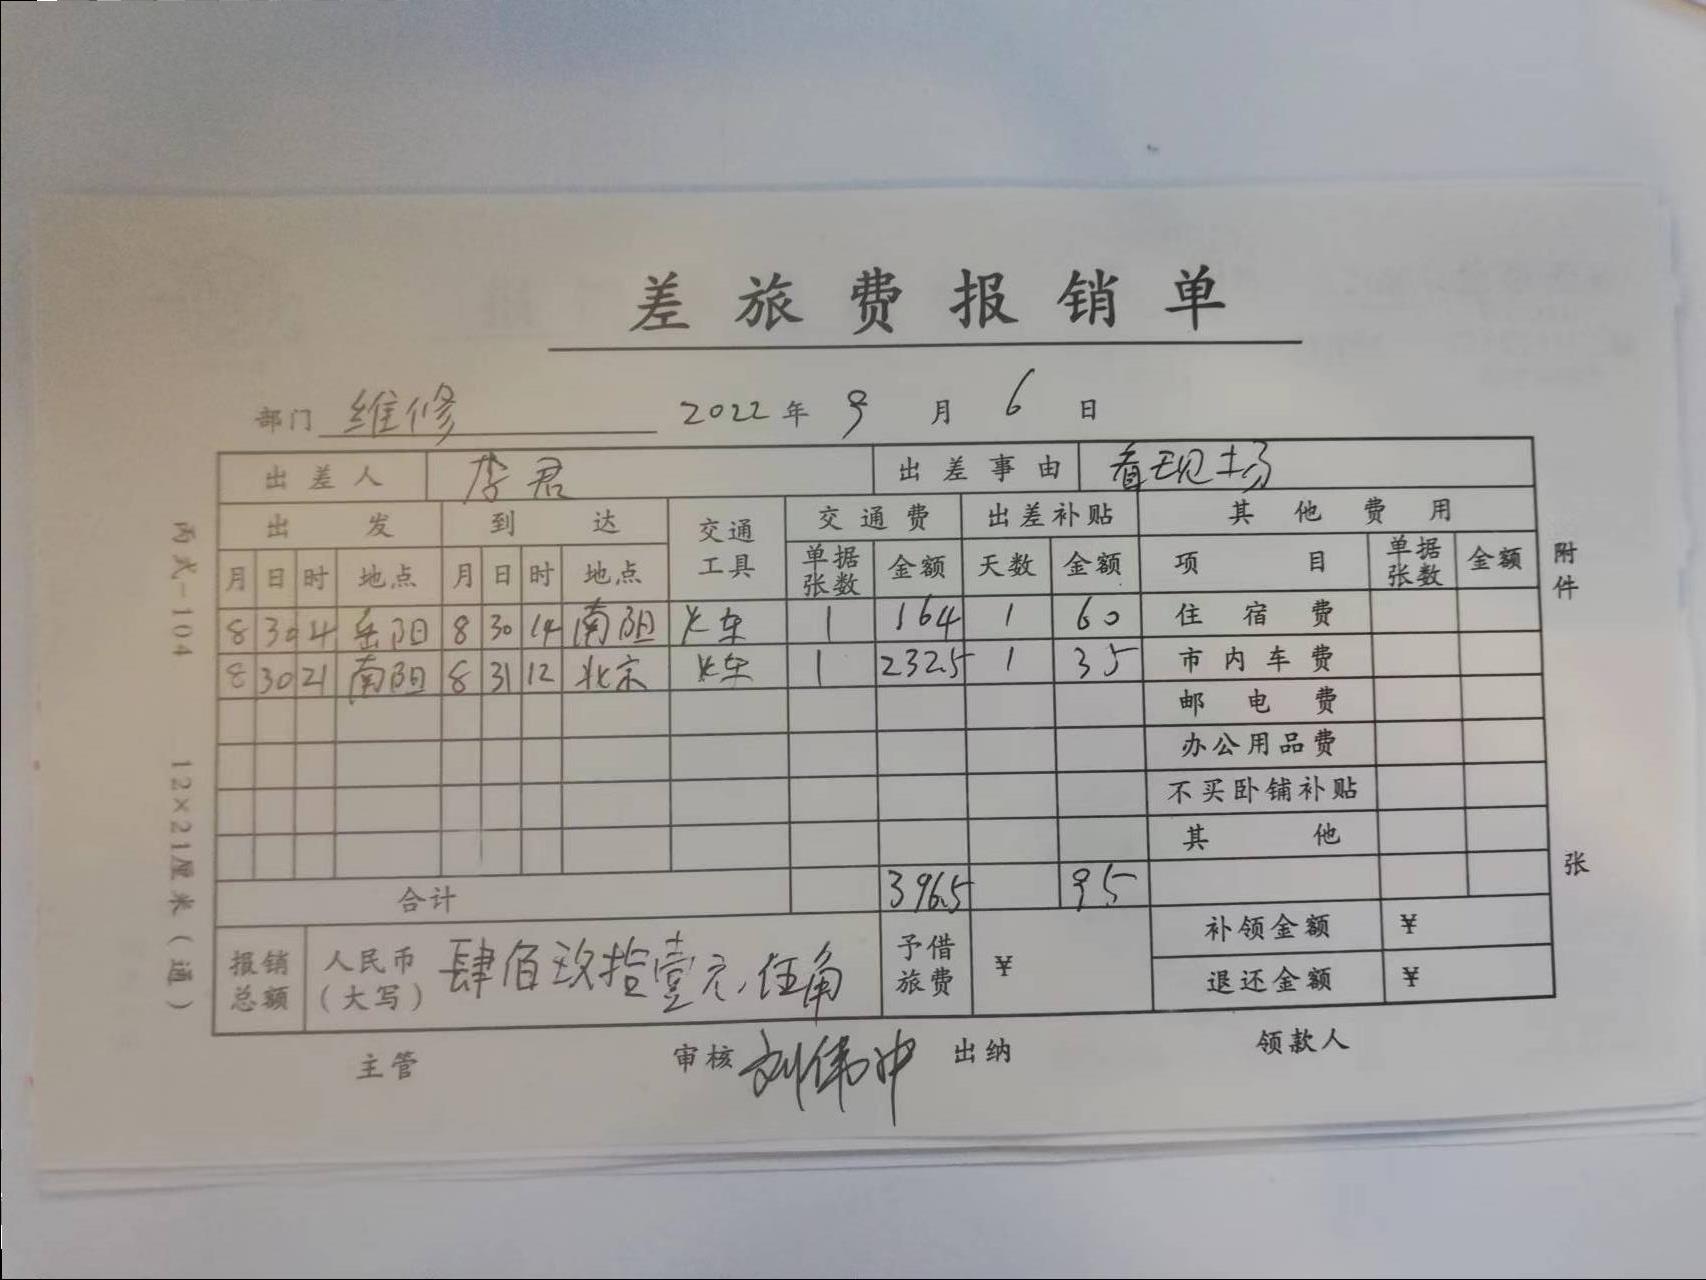 差旅费报销单
部门 维修 2022 年 9 月 6 日
出差人 李君 出差事由 看现场
出发 到达 交通工具 交通费 出差补贴 其他费用
月 日 时 地点 月 日 时 地点 单据张数 金额 天数 金额 项目 单据张数 金额
8 30 4 岳阳 8 30 14 南阳 火车 1 164 1 60 住宿费
8 30 21 南阳 8 31 12 北京 火车 1 232.5 1 35 市内车费
邮电费
办公用品费
不买卧铺补贴
其他
合计 396.5 95
报销总额 人民币(大写) 肆佰玖拾壹元.伍角 予借旅费 ¥ 补领金额 ¥
退还金额 ¥
主管 审核 刘伟冲 出纳 领款人
丙式-104 12×21厘米(通)
附件 张